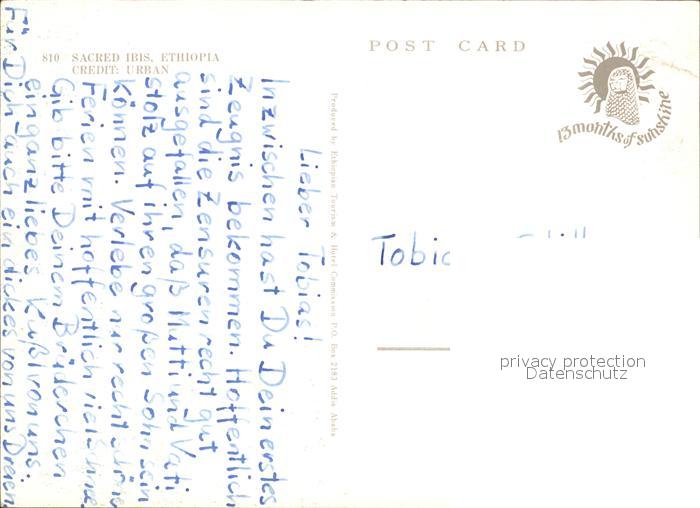 810 SACRED IBIS, ETHIOPIA
CREDIT: URBAN
POST CARD
13 months of sunshine
Produced by Ethiopian Tourism & Hotel Commission P.O. Box 2183 Addis Ababa
Lieber Tobias!
Inzwischen hast Du Dein erstes
Zeugnis bekommen. Hoffentlich
sind die Zensuren recht gut
ausgefallen, daß Mutti und Vati
stolz auf ihren großen Sohn sein
können. Verlebe nur recht schöne
Ferien mit hoffentlich viel
Gib bitte Deinem Brüderchen
ein ganz liebes Küßl von uns.
Für Dich auch ein dickes von uns Dreien
Tobia
privacy protection
Datenschutz